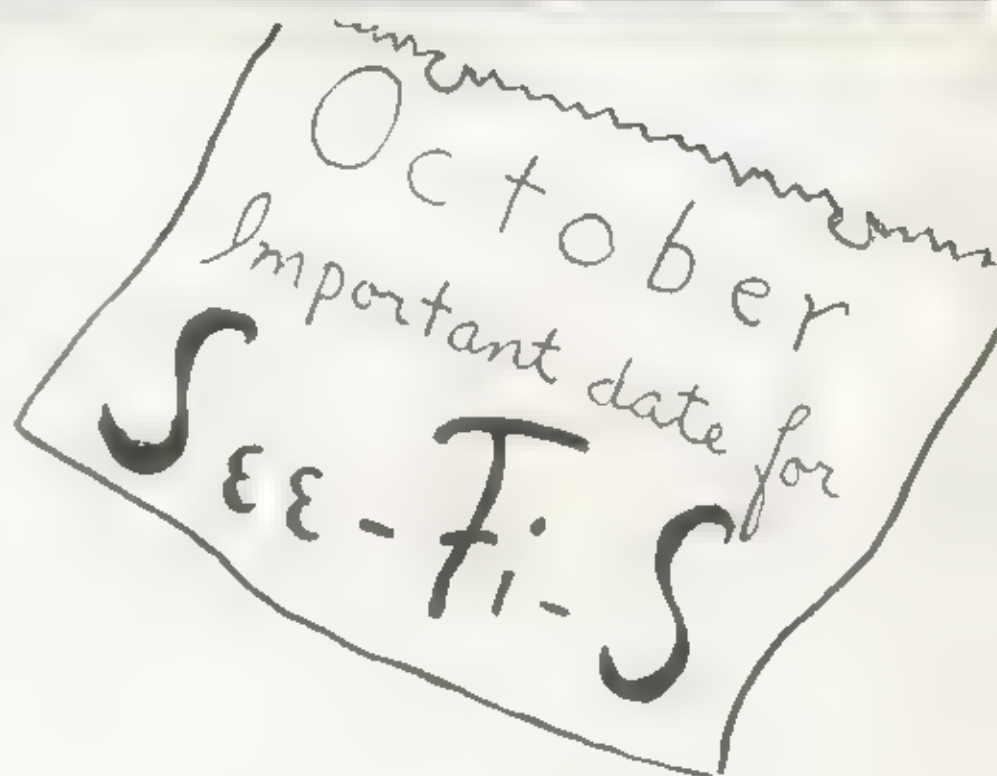 October
Important date for
See-Fi-S